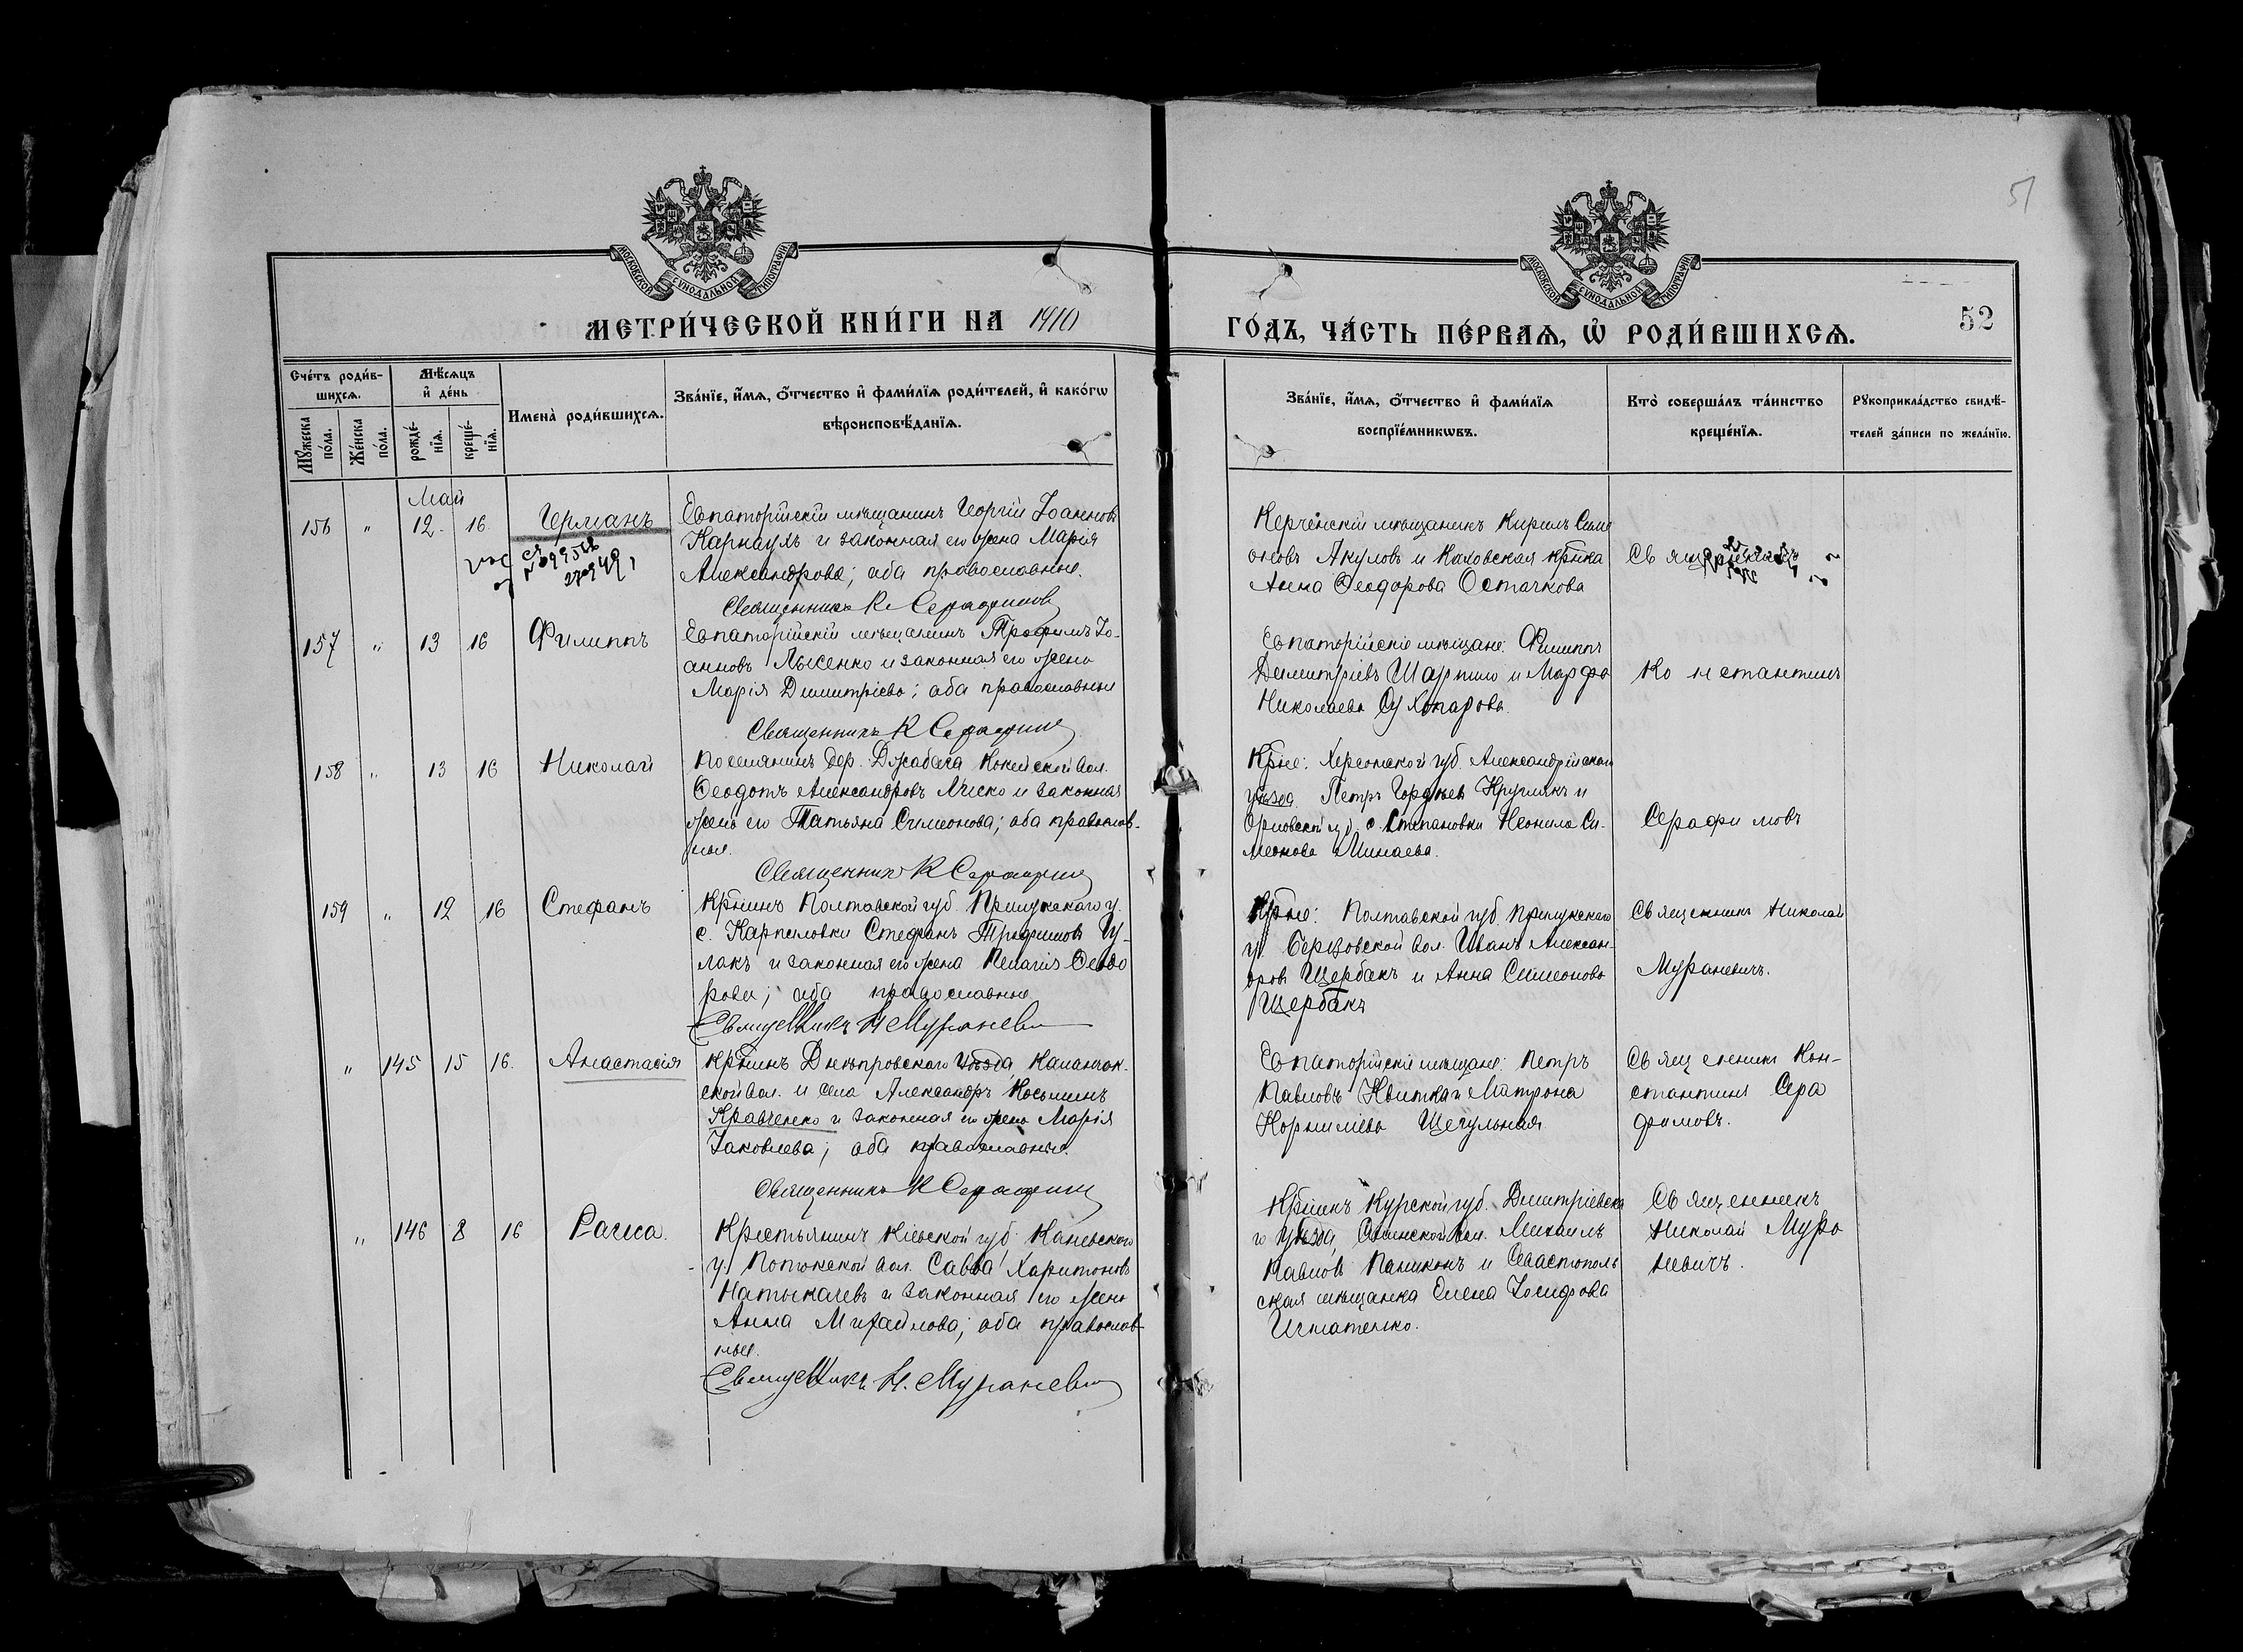 51
МОСКОВСКОЙ СУНОДАЛЬНОЙ ТИПОГРАФІИ
МОСКОВСКОЙ СУНОДАЛЬНОЙ ТИПОГРАФІИ
МЕТРИ́ЧЕСКОЙ КНИ́ГИ НА 1910
ГО́ДЪ, ЧА́СТЬ ПЕ́РВАѦ, Ѡ҆ РОДИ́ВШИХСѦ.
52
Сче́тъ роди́в-
шихсѧ.
Мꙋ́жеска по́ла.
Же́нска по́ла.
Мѣ́сѧцъ
и҆ де́нь
рожде́-
нїѧ.
креще́-
нїѧ.
Имена̀ роди́вшихсѧ.
Зва́нїе, и҆́мѧ, ѻ҆́тчество и҆ фами́лїѧ роди́телей, и҆ како́гѡ
вѣроисповѣ́данїѧ.
Зва́нїе, и҆́мѧ, ѻ҆́тчество и҆ фами́лїѧ
воспрїе́мникѡвъ.
Кто̀ соверша́лъ та́инство
креще́нїѧ.
Рꙋкоприкла́дство свидѣ́-
телей за́писи по жела́нїю.
Май
156 " 12. 16. Германъ
Евпаторійскій мѣщанинъ Георгій Іоанновъ
Карнаухъ и законная его жена Марія
Александрова; оба православные.
Священникъ К Серафимовъ
Керченскій мѣщанинъ Кирилъ Симе
оновъ Акуловъ и Каховская кр̃нка
Анна Ѳеодорова Остачкова
Священникъ
157 " 13 16 Филиппъ
Евпаторійскій мѣщанинъ Трофимъ Іо-
анновъ Лысенко и законная его жена
Марія Димитріева; оба православные
Священникъ К Серафим
Евпаторійскіе мѣщане: Филиппъ
Димитріевъ Шарпило и Марфа
Николаева Сухопарова.
Константинъ
158 " 13 16 Николай
Поселянинъ дер. Джабага вол.
Ѳеодотъ Александровъ и законная
жена его Татьяна Симеонова; оба православ-
ные.
Священникъ К Серафим
Кр̃не: Херсонской губ. Александрійскаго
уѣзда Петръ Гордѣевъ Кругликъ и
Орловской губ. с. Степановки Неонила Си-
меонова Минаева.
Серафимовъ
159 " 12 16 Стефанъ
Кр̃нинъ Полтавской губ. Прилукскаго у.
с. Карпиловки Стефанъ Трофимовъ Гу-
лакъ и законная его жена Пелагія Ѳеодо
рова; оба православные.
Священникъ Н Мураневи
Кр̃не: Полтавской губ. Прилукскаго
у. вол. Иванъ Алексан-
дровъ Щербакъ и Анна Симеонова
Щербакъ
Священникъ Николай
Мураневичъ.
" 145 15 16. Анастасія
Кр̃нинъ Днѣпровскаго уѣзда, Каланчак-
ской вол. и села Александръ Косьминъ
Кравченко и законная его жена Марія
Іаковлева; оба православные.
Священникъ К Серафим
Евпаторійскіе мѣщане: Петръ
Павловъ Квитка и Матрона
Корниліева Щегульная
Священникъ Кон-
стантинъ Сера
фимовъ.
" 146 8 16 Раиса.
Крестьянинъ Кіевской губ. Каневскаго
у. Потокской вол. Савва Харитоновъ
Натыкачевъ и законная его жена
Анна Михайлова; оба православ-
ные.
Священникъ Н. Мураневи
Кр̃нинъ Курской губ. Димитріевска
го уѣзда, вол. Михаилъ
Павловъ и Севастополь
ская мѣщанка Елена Іосифова
Игнатенко.
Священникъ
Николай Мура
невичъ.